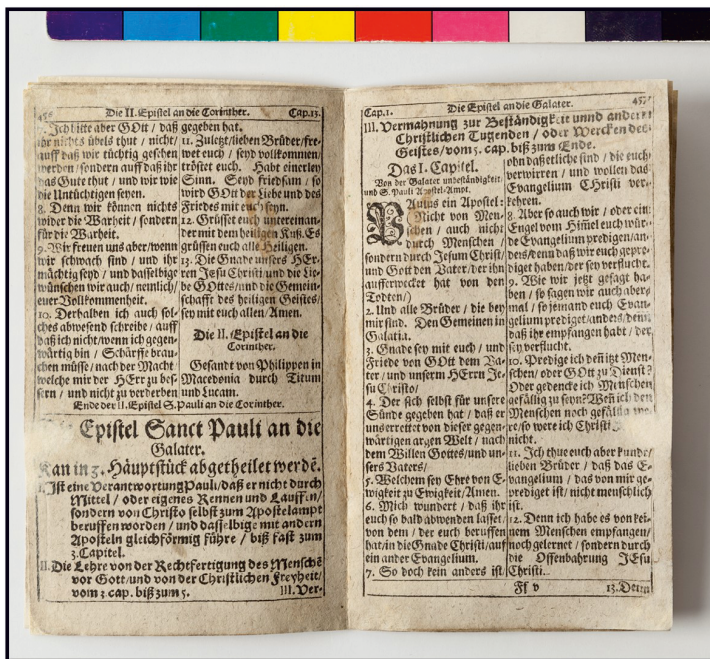 456 Die II. Epistel an die Corinther. Cap.13.
7. Ich bitte aber GOtt / daß
ihr nichts übels thut / nicht/
auff daß wir tüchtig gesehen
werden/sondern auff daß ihr
das Gute thut / und wir wie
die Untüchtigen seyen.
8. Denn wir können nichts
wider die Warheit / sondern
für die Warheit.
9. Wir freuen uns aber/wenn
wir schwach sind / und ihr
mächtig seyd / und dasselbige
wünschen wir auch/nemlich/
euer Vollkommenheit.
10. Derhalben ich auch sol-
ches abwesend schreibe / auff
daß ich nicht/wenn ich gegen-
wärtig bin / Schärffe brau-
chen müsse/nach der Macht/
welche mir der HErr zu bes-
sern / und nicht zu verderben
gegeben hat.
11. Zuletzt/lieben Brüder/fre-
wet euch / seyd vollkommen/
tröstet euch. Habt einerley
Sinn. Seyd friedsam / so
wird GOtt der Liebe und des
Friedes mit euch seyn.
12. Grüsset euch untereinan-
der mit dem heiligen Kuß. Es
grüssen euch alle Heiligen.
13. Die Gnade unsers HEr-
ren JEsu Christi/und die Lie-
be GOttes/und die Gemein-
schafft des heiligen Geistes/
sey mit euch allen/Amen.
Die II. Epistel an die
Corinther.
Gesandt von Philippen in
Macedonia durch Titum
und Lucam.
Ende der II. Epistel S. Pauli an die Corinther.
Epistel Sanct Pauli an die
Galater.
Kan in 3. Häuptstück abgetheilet werdẽ.
I. Ist eine Verantwortung Pauli/daß er nicht durch
Mittel / oder eigenes Rennen und Lauffen/
sondern von Christo selbst zum Apostelampt
beruffen worden / und dasselbige mit andern
Aposteln gleichförmig führe / biß fast zum
3. Capitel.
II. Die Lehre von der Rechtfertigung des Menschẽ
vor Gott/und von der Christlichen Freyheit/
vom 3. cap. biß zum 5.
III. Ver-
Cap.1. Die Epistel an die Galater. 457
III. Vermahnung zur Beständigkeit unnd anderer
Christlichen Tugenden / oder Wercken des
Geistes/vom 5. cap. biß zum Ende.
Das I. Capitel.
Von der Galater unbeständigkeit/
und S. Pauli Apostel-Ampt.
PAulus ein Apostel:
Nicht von Men-
schen / auch nicht
durch Menschen /
sondern durch Jesum Christ/
und Gott den Vater/der ihn
aufferwecket hat von den
Todten/)
2. Und alle Brüder / die bey
mir sind. Den Gemeinen in
Galatia.
3. Gnade sey mit euch / und
Friede von GOtt dem Va-
ter / und unserm HErrn Je-
su Christo/
4. Der sich selbst für unsere
Sünde gegeben hat / daß er
uns errettet von dieser gegen-
wärtigen argen Welt / nach
dem Willen Gottes/und un-
sers Vaters/
5. Welchem sey Ehre von E-
wigkeit zu Ewigkeit/Amen.
6. Mich wundert / daß ihr
euch so bald abwenden lasset/
von dem / der euch beruffen
hat/in die Gnade Christi/auf
ein ander Evangelium.
7. So doch kein anders ist/
ohn daß etliche sind / die euch
verwirren / und wollen das
Evangelium CHristi ver-
kehren.
8. Aber so auch wir / oder ein
Engel vom Him̃el euch wür-
de Evangelium predigen/an-
ders/denn daß wir euch gepre-
diget haben/der sey verflucht.
9. Wie wir jetzt gesagt ha-
ben / so sagen wir auch aber-
mal / so jemand euch Evan-
gelium prediget/anders/denn
daß ihr empfangen habt / der
sey verflucht.
10. Predige ich deñ itzt Men-
schen / oder GOtt zu Dienst?
Oder gedencke ich Menschen
gefällig zu seyn? Weñ ich den
Menschen noch gefällig we-
re/so were ich Christi
nicht.
11. Ich thue euch aber kund/
lieben Brüder / daß das E-
vangelium / das von mir ge-
prediget ist/nicht menschlich
ist.
12. Denn ich habe es von kei-
nem Menschen empfangen/
noch gelernet / sondern durch
die Offenbahrung JEsu
Christi.
Ff v 13. Denn